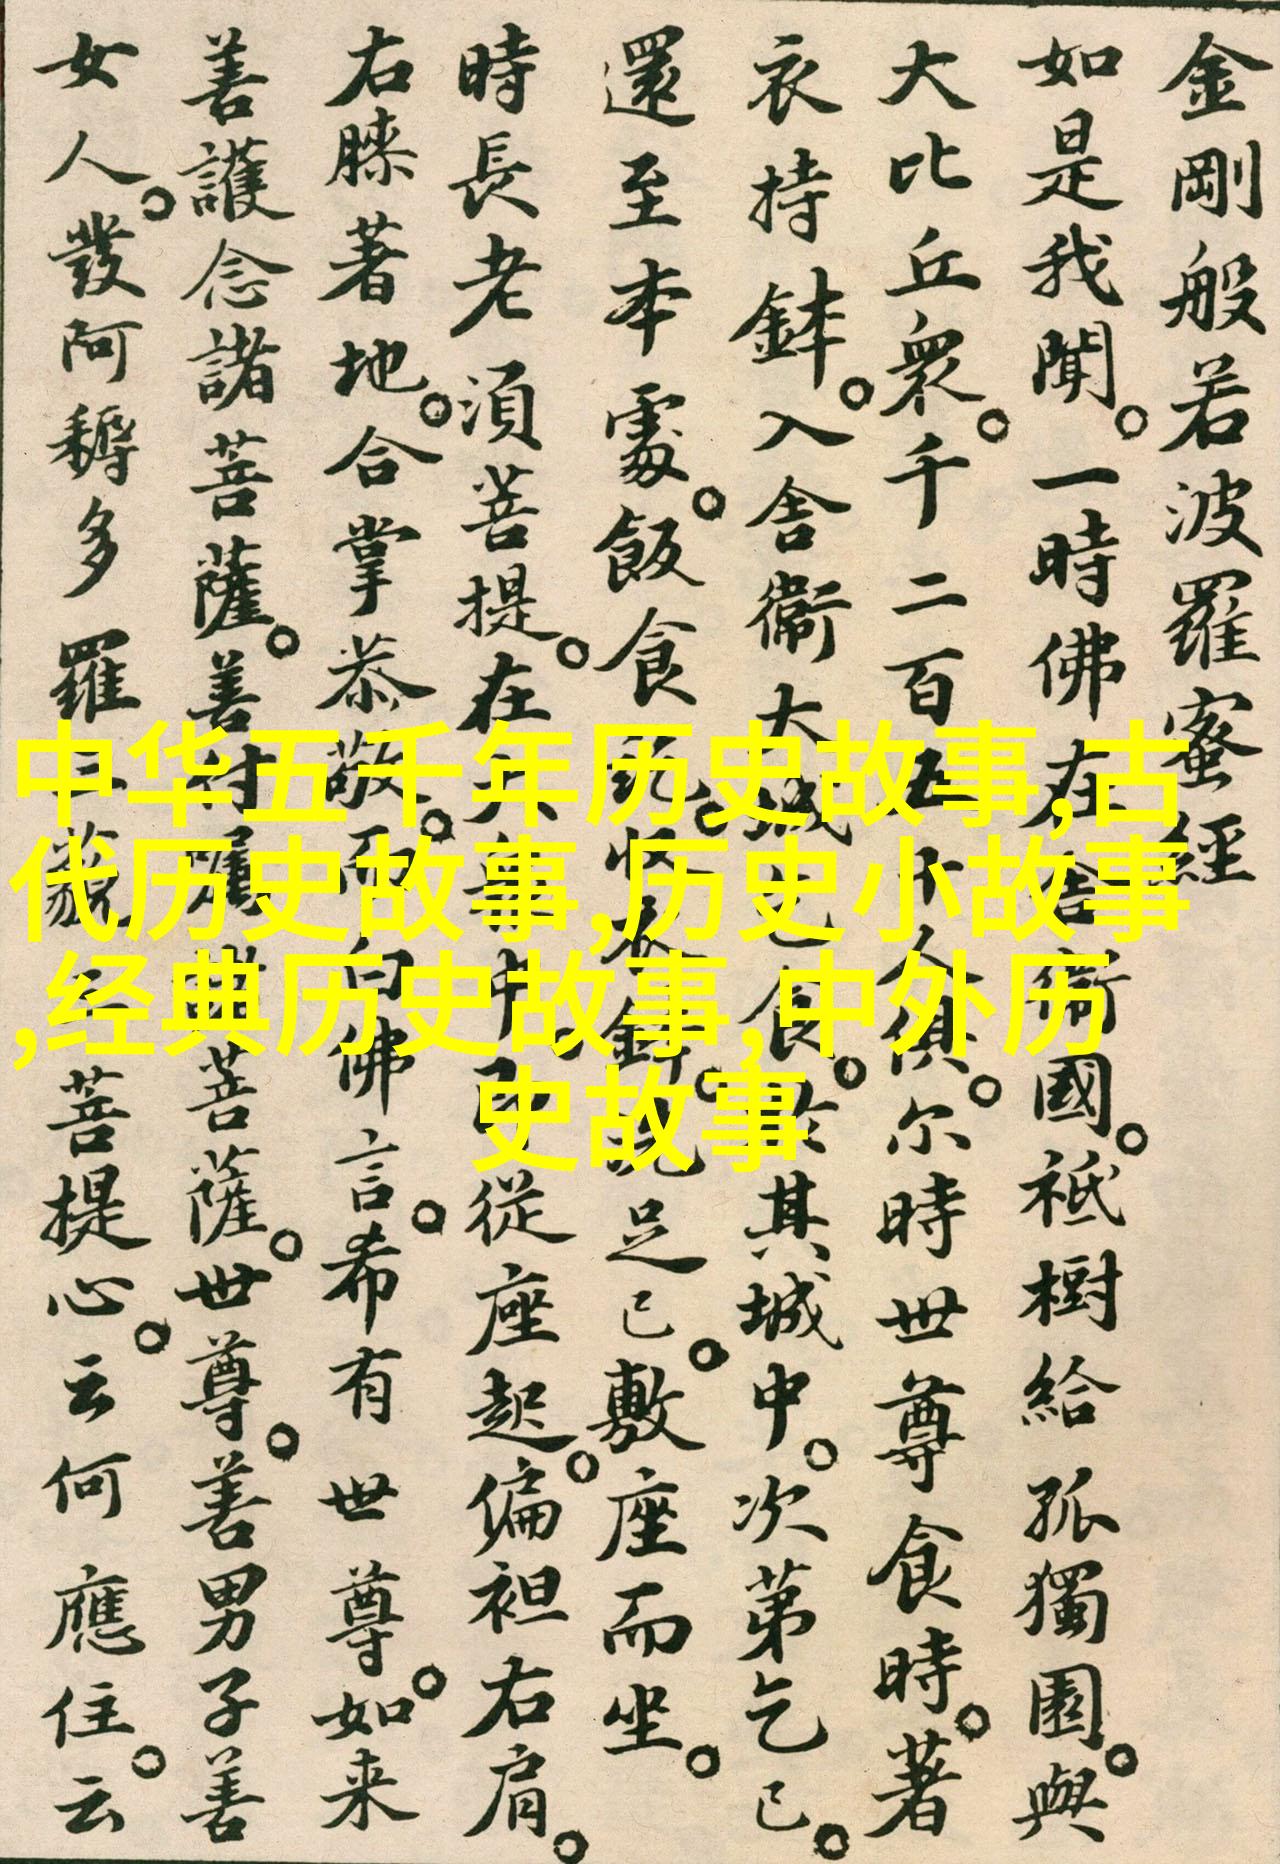 金剛般若波羅蜜經
如是我聞。一時佛在舍衛國。祇樹給孤獨園。與
大比丘衆。千二百五十人俱。尔時世尊食時。著
衣持鉢。入舍衛大城乞食。於其城中。次第乞已。
還至本處。飯食訖。收衣鉢。洗足已。敷座而坐。
時長老須菩提。在大衆中。即從座起。偏袒右肩。
右膝著地。合掌恭敬。而白佛言。希有世尊。如来
善護念諸菩薩。善付囑諸菩薩。世尊。善男子善
女人。發阿耨多羅三藐三菩提心。云何應住。云
中华五千年历史故事,古
代历史故事,历史小故事
,经典历史故事,中外历
史故事